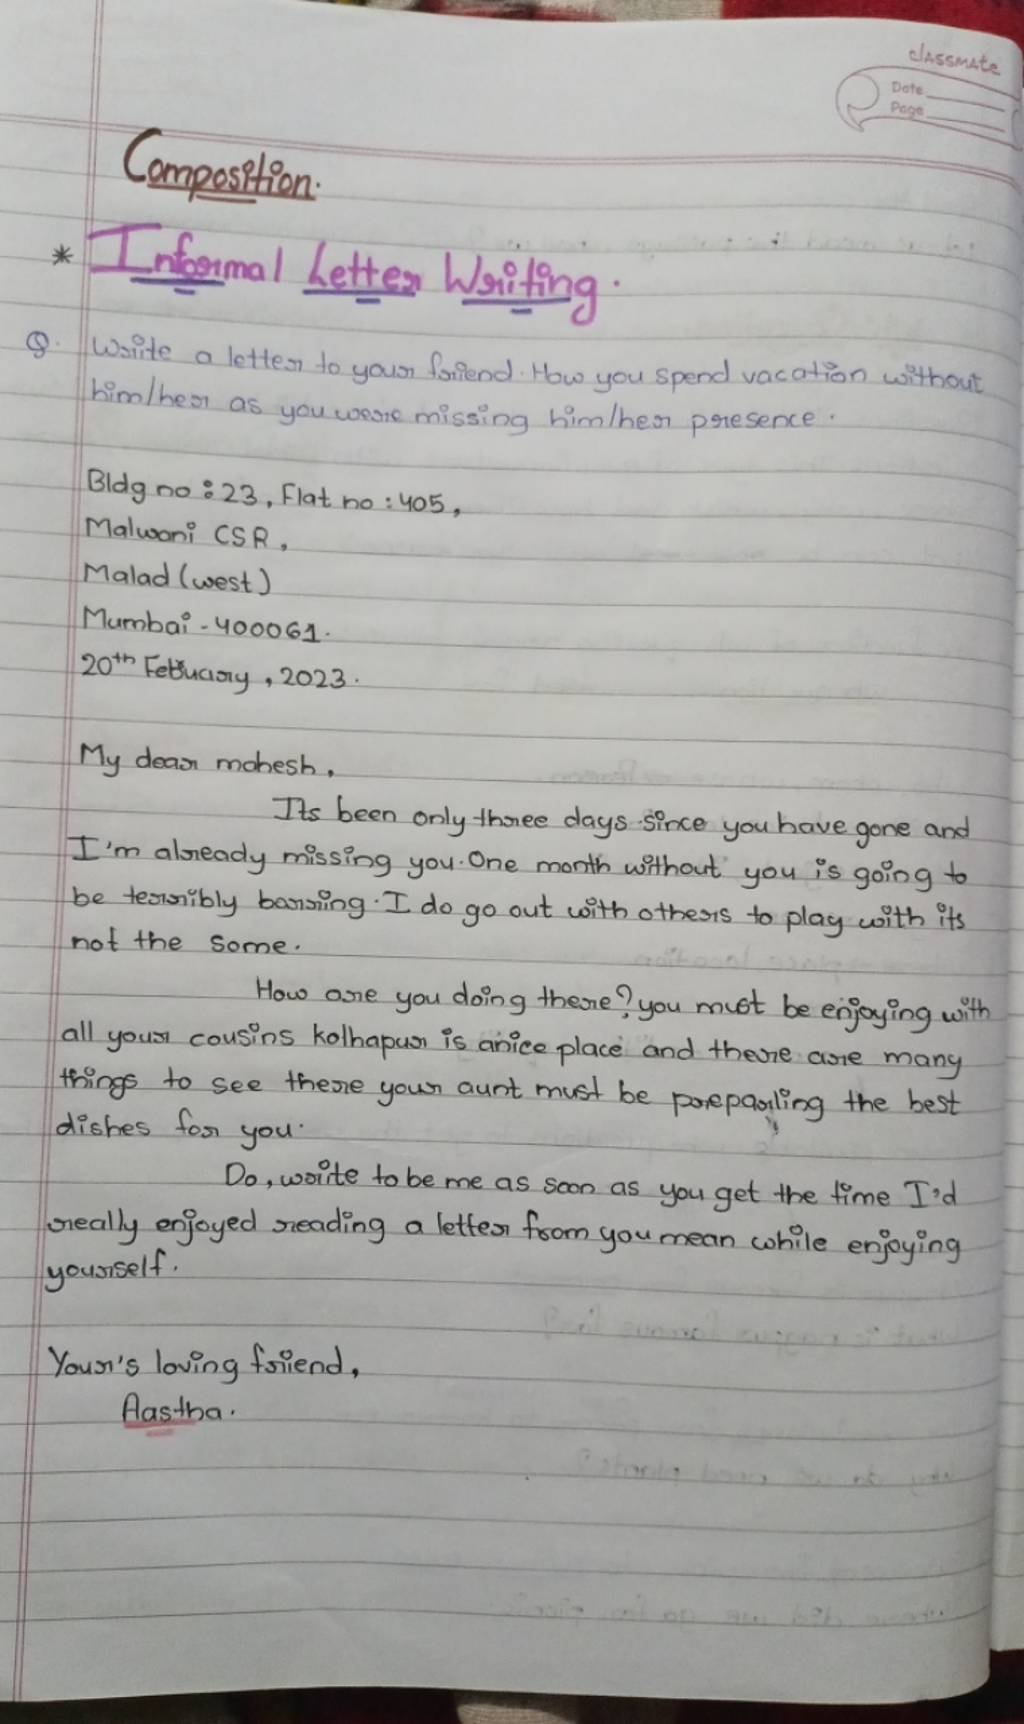 classmate
Date
Page
Composition.
* Informal Letter Writing.
Q. Write a letter to your friend. How you spend vacation without
him/her as you were missing him/her presence.
Bldg no : 23, Flat no : 405,
Malwani CSR,
Malad (west)
Mumbai - 400061.
20th February, 2023.
My dear mahesh,
Its been only three days since you have gone and
I'm already missing you. One month without you is going to
be terribly borring. I do go out with others to play with its
not the same.
How are you doing there? you must be enjoying with
all your cousins kolhapur is a nice place and there are many
things to see there your aunt must be preparing the best
dishes for you.
Do, write to be me as soon as you get the time I'd
really enjoyed reading a letter from you mean while enjoying
yourself.
Your's loving friend,
Aastha.